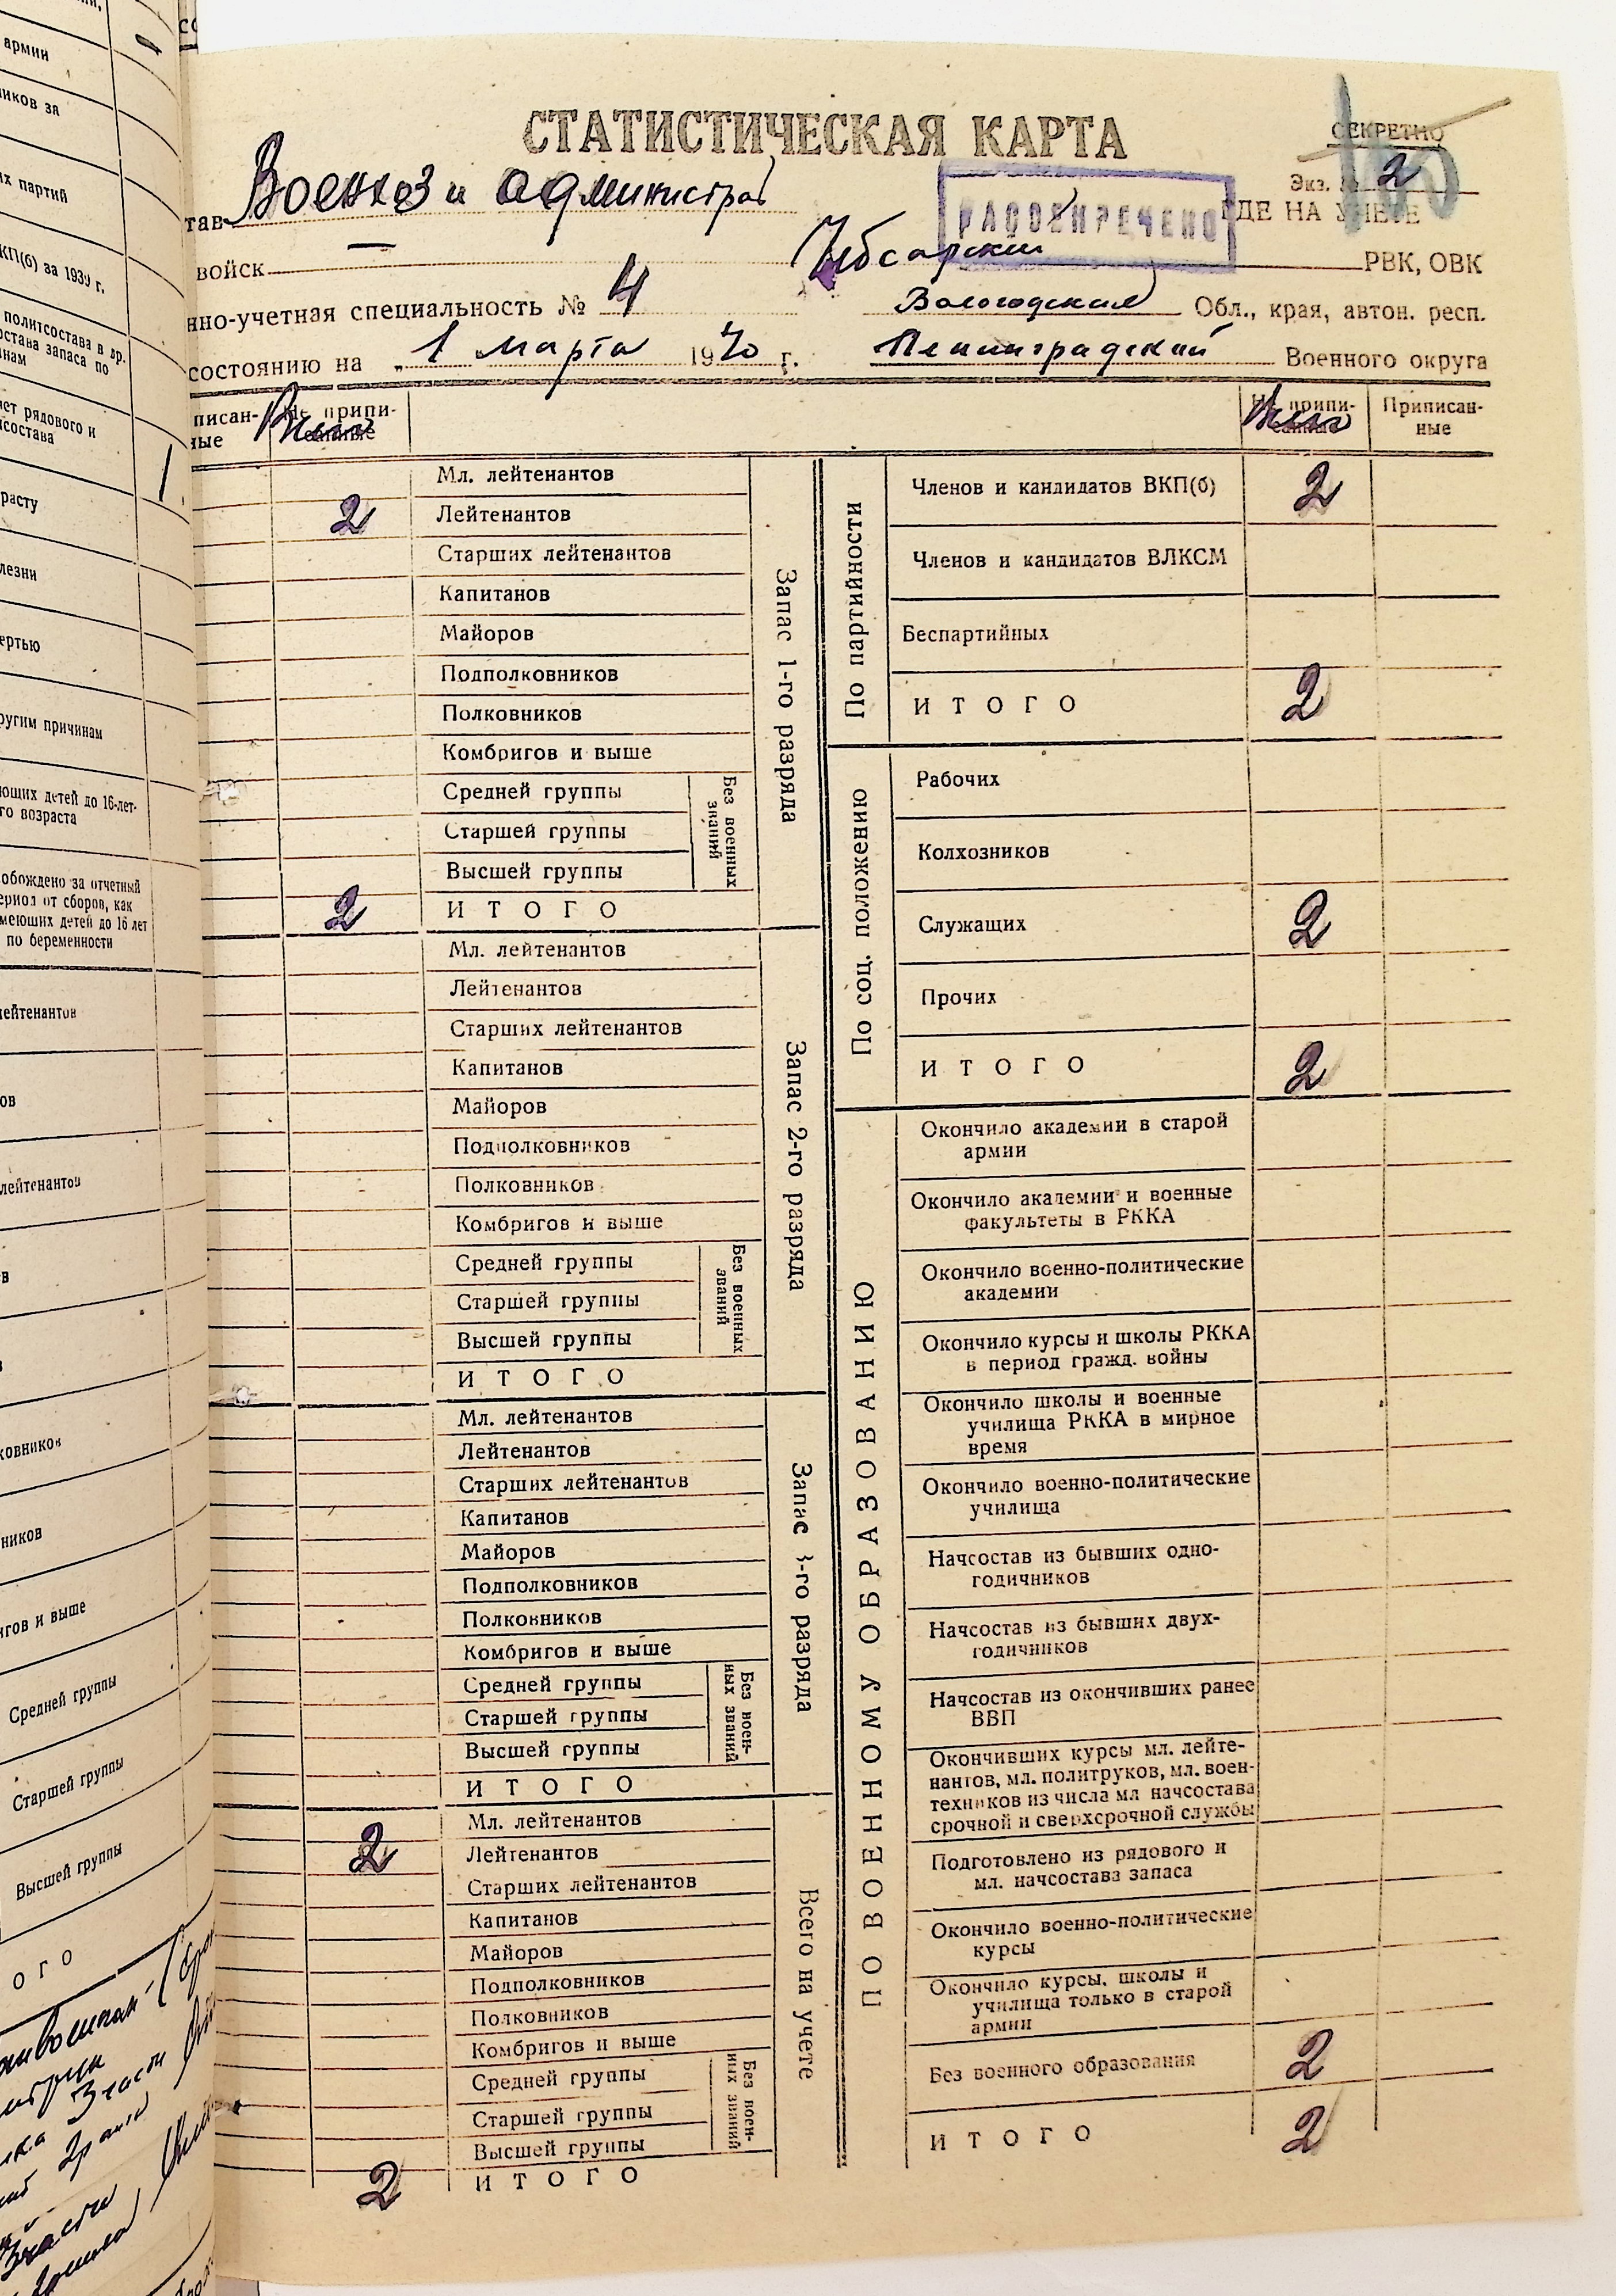 СТАТИСТИЧЕСКАЯ КАРТА
СЕКРЕТНО
Экз. № 2
тав Военхоз и администрат
РАССЕКРЕЧЕНО
ГДЕ НА УЧЕТЕ
войск —
РВК, ОВК
нно-учетная специальность № 4
Вологодская Обл., края, автон. респ.
состоянию на „1 марта 1940 г.
Ленинградский Военного округа
писан-
ные
Не припи-
санные
Всего
Не припи-
санные
Всего
Приписан-
ные
Запас 1-го разряда
Мл. лейтенантов
Лейтенантов 2
Старших лейтенантов
Капитанов
Майоров
Подполковников
Полковников
Комбригов и выше
Без военных
званий
Средней группы
Старшей группы
Высшей группы
ИТОГО 2
Запас 2-го разряда
Мл. лейтенантов
Лейтенантов
Старших лейтенантов
Капитанов
Майоров
Подполковников
Полковников
Комбригов и выше
Без военных
званий
Средней группы
Старшей группы
Высшей группы
ИТОГО
Запас 3-го разряда
Мл. лейтенантов
Лейтенантов
Старших лейтенантов
Капитанов
Майоров
Подполковников
Полковников
Комбригов и выше
Без воен-
ных званий
Средней группы
Старшей группы
Высшей группы
ИТОГО
Всего на учете
Мл. лейтенантов
Лейтенантов 2
Старших лейтенантов
Капитанов
Майоров
Подполковников
Полковников
Комбригов и выше
Без воен-
ных званий
Средней группы
Старшей группы
Высшей группы
ИТОГО 2
По партийности
Членов и кандидатов ВКП(б) 2
Членов и кандидатов ВЛКСМ
Беспартийных
ИТОГО 2
По соц. положению
Рабочих
Колхозников
Служащих 2
Прочих
ИТОГО 2
ПО ВОЕННОМУ ОБРАЗОВАНИЮ
Окончило академии в старой
армии
Окончило академии и военные
факультеты в РККА
Окончило военно-политические
академии
Окончило курсы и школы РККА
в период гражд. войны
Окончило школы и военные
училища РККА в мирное
время
Окончило военно-политические
училища
Начсостав из бывших одно-
годичников
Начсостав из бывших двух-
годичников
Начсостав из окончивших ранее
ВВП
Окончивших курсы мл. лейте-
нантов, мл. политруков, мл. воен-
техников из числа мл начсостава
срочной и сверхсрочной службы
Подготовлено из рядового и
мл. начсостава запаса
Окончило военно-политические
курсы
Окончило курсы, школы и
училища только в старой
армии
Без военного образования 2
ИТОГО 2
армии
ников за
х партий
КП(б) за 1939 г.
политсостава в др.
остава запаса по
нам
чет рядового и
чсостава 1
расту
лезни
ертью
ругим причинам
ющих детей до 16-лет-
го возраста
обождено за отчетный
ериод от сборов, как
меющих детей до 16 лет
по беременности
лейтенантов
ов
лейтенантов
в
ковников
ников
игов и выше
Средней группы
Старшей группы
Высшей группы
ОГО